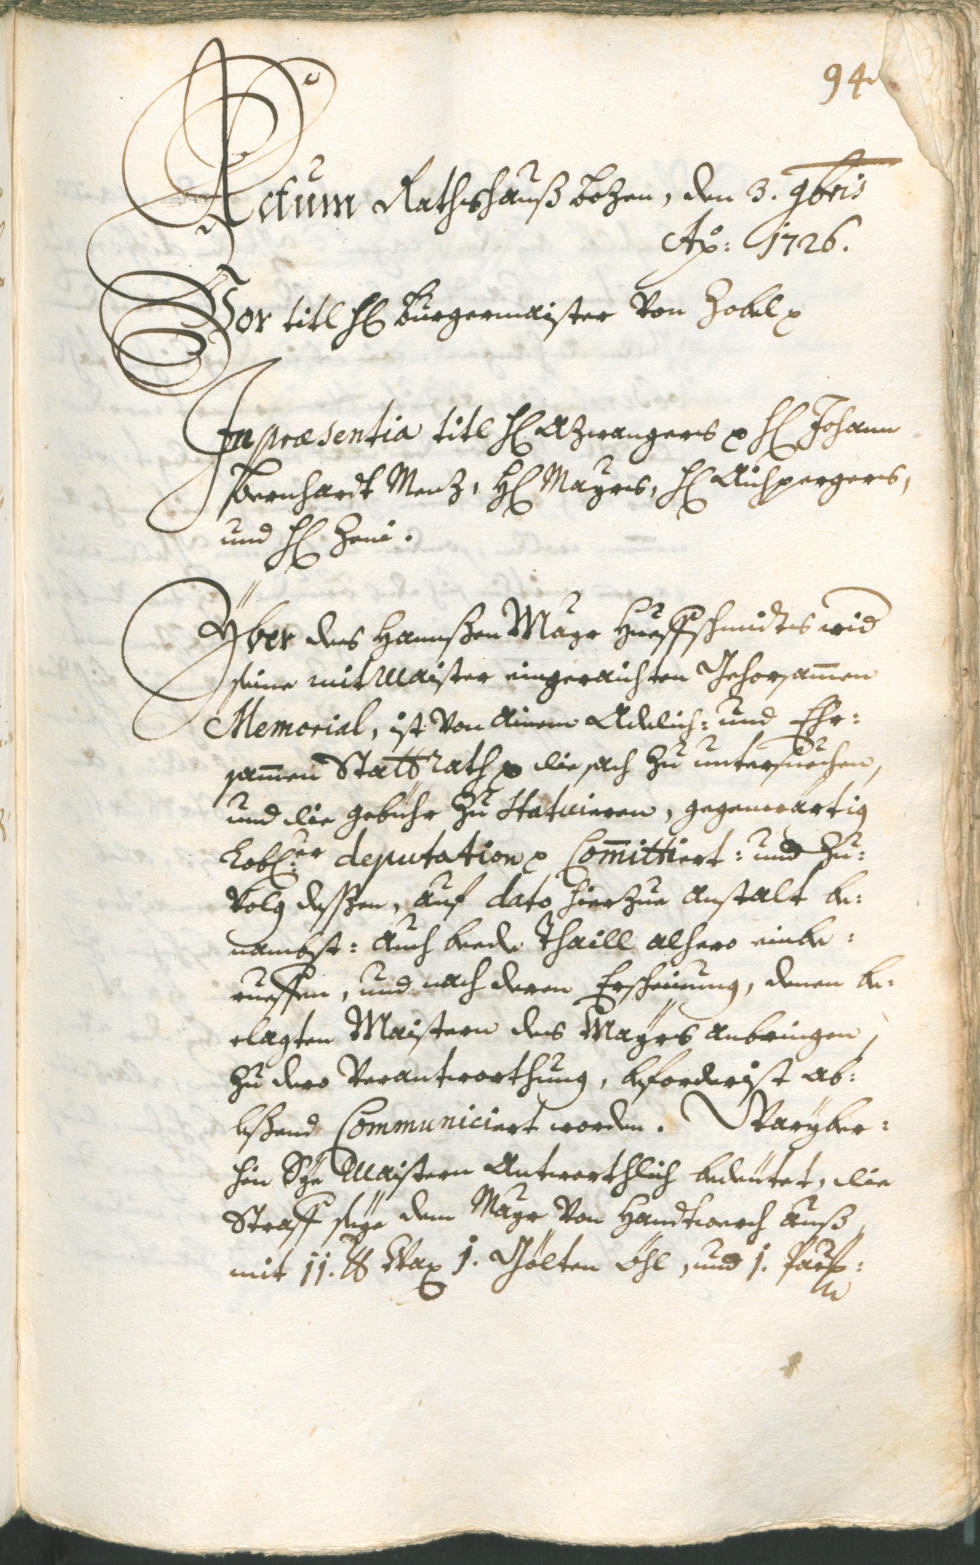 94
Actum Rathshauß Bozen, den 3. 9bris
Ao: 1726.
Vor titl H: Burgermaister von Zobel p
In præsentia titl H: Azwangers p H: Johann
Bernhardt Menz, H: Mayrs, H: Aichpergers,
und H: Zeni.
Yber des Hannßen Mayr Hueffschmidts wid
seine mitMaister eingeraichten Gehorsamen
Memorial, ist von ainem Adelich: und Ehr:
samen Stattrath p die sach zu untersuechen,
und die gebühr zu statuieren, gegenwärtig
Lobl:er deputation p Committiert: und zu:
volg dessen, auf dato hierzue anstalt be:
nambst: auch beede Thaill alhero einbe:
rueffen, und nach deren Erscheinung, denen be:
clagten Maistern des Mayrs anbringen,
zu dero Verantworthung, beforderist ab:
leßend Communiciert worden. Daryber:
hin Sye Maistern Antworthlich bedeutet, die
Straff seye dem Mayr von Handtwerch auß,
mit 11. ℔ Wax 1. Gölten Öhl, und 1.